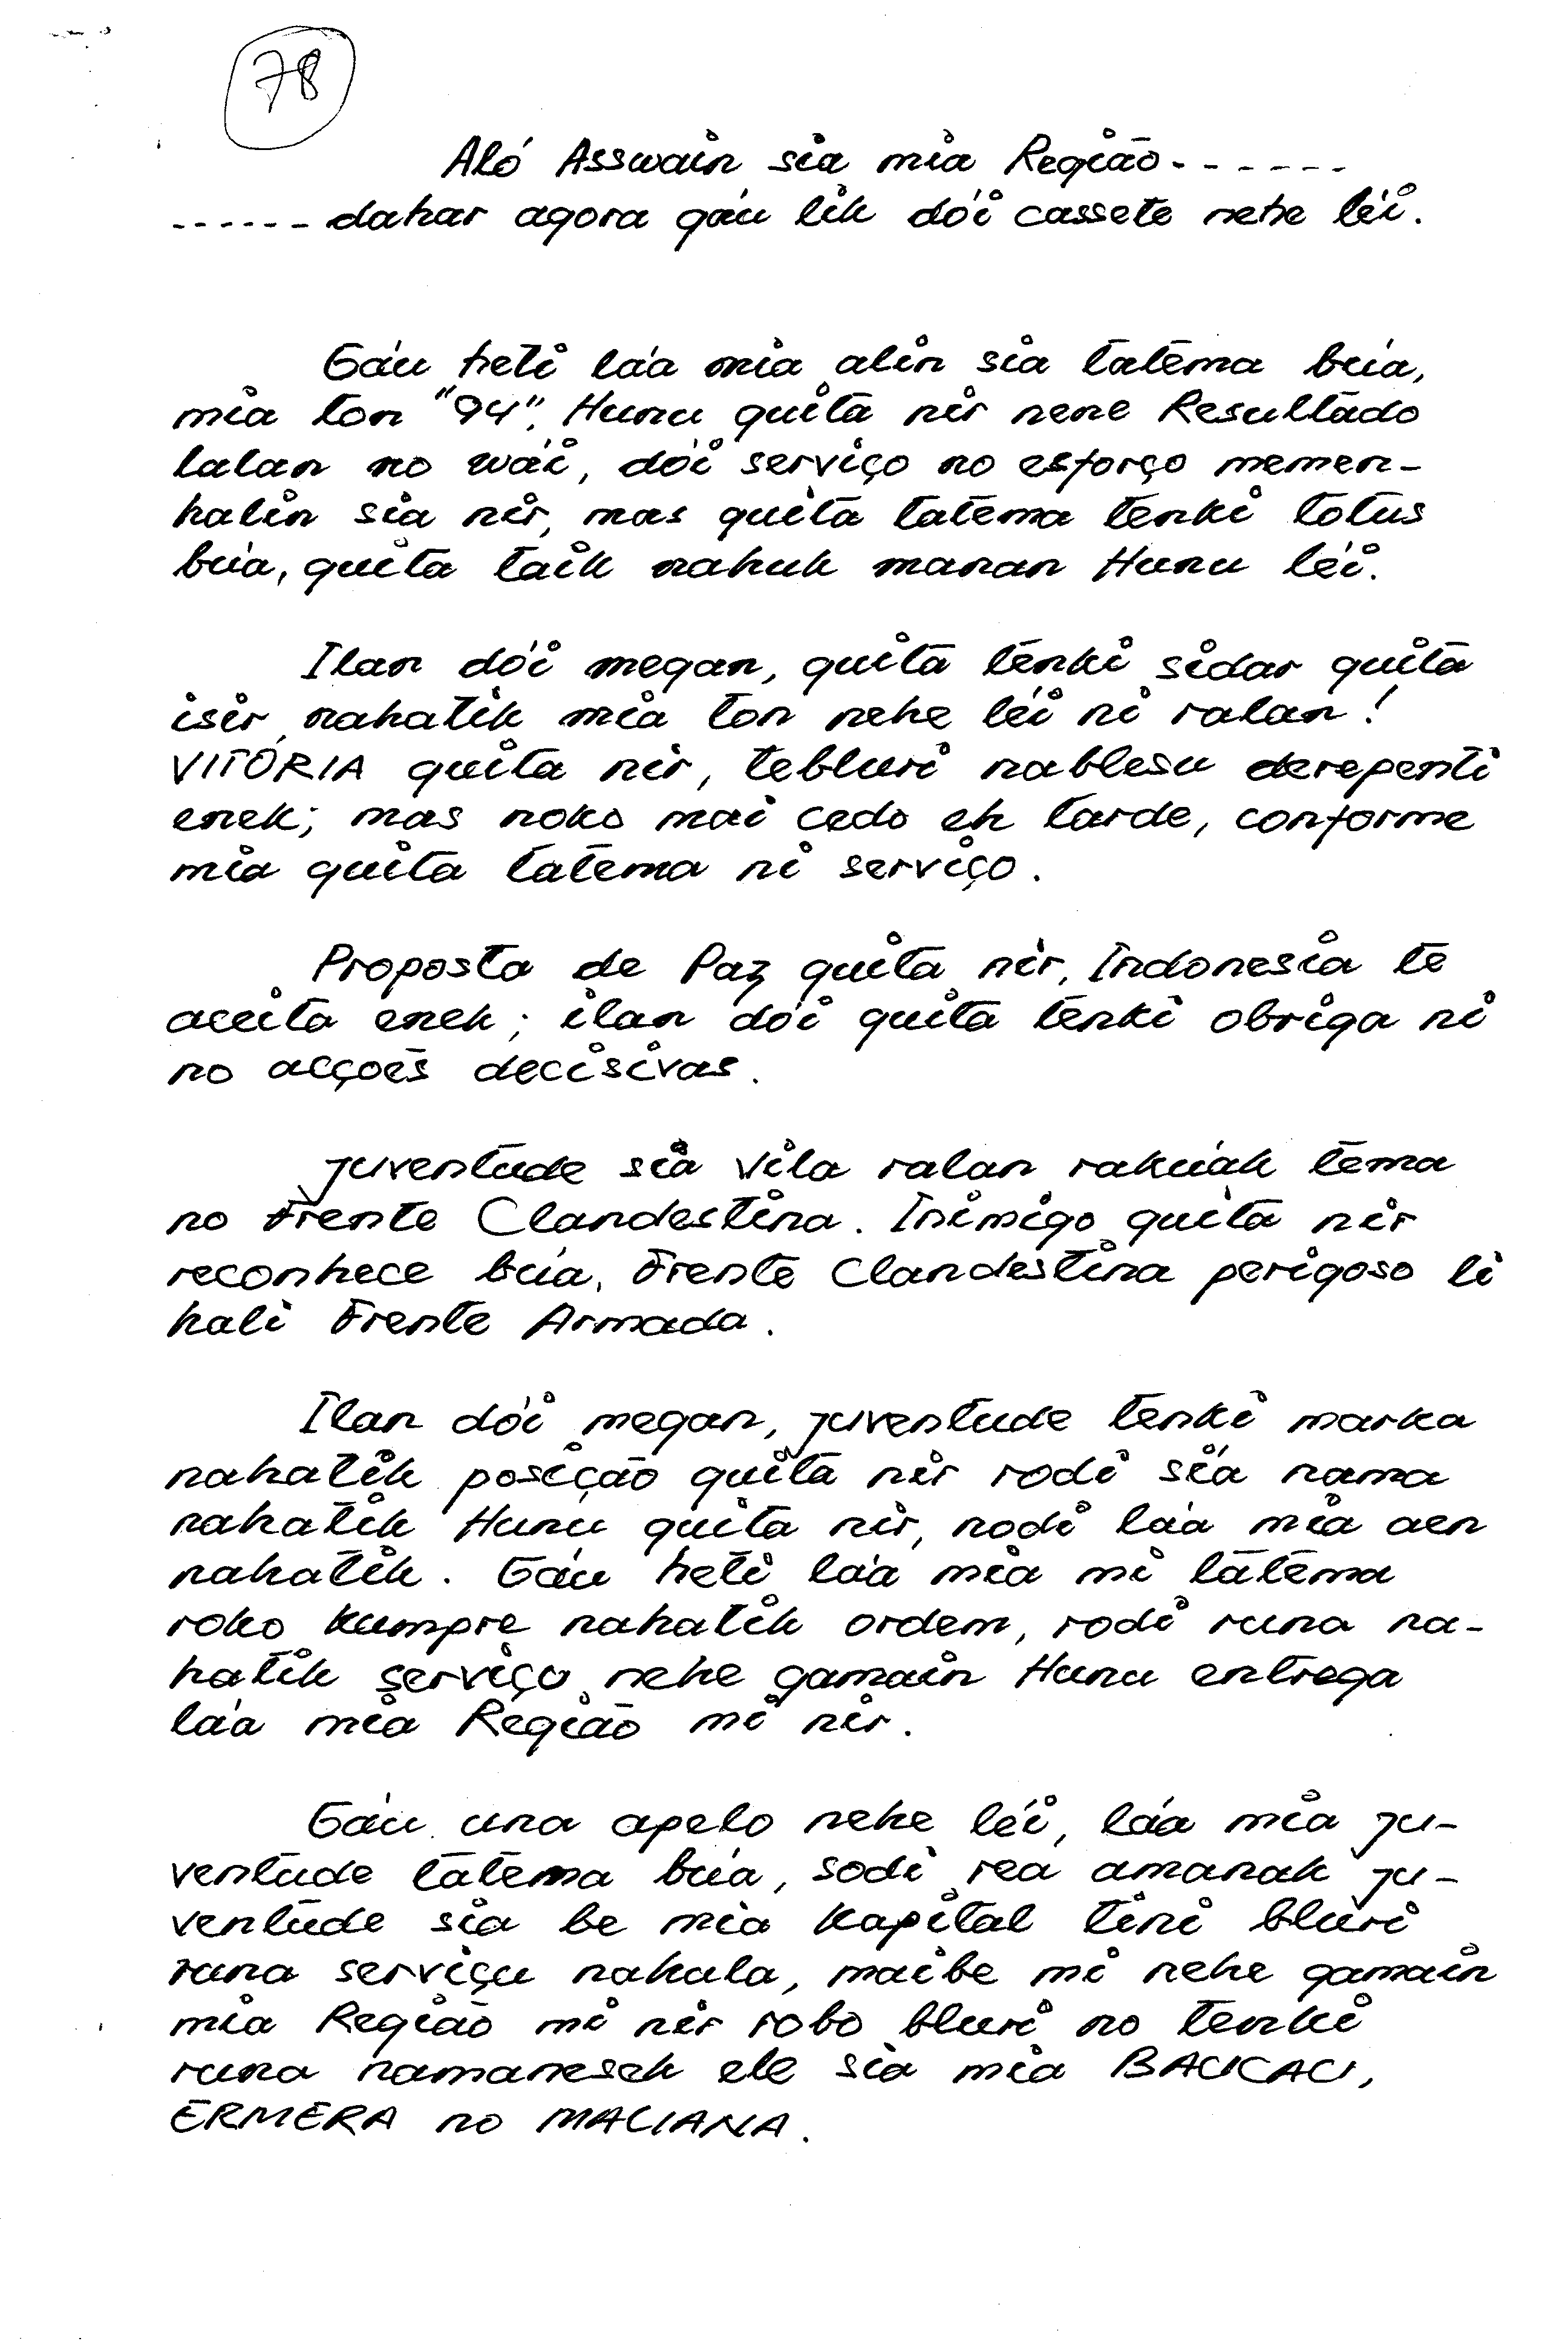 78
Aló Asswain sia mia Região-------
------dahar agora gáu lik dói cassete nehe léi.
Gáu heti láa mia alin sia tatema búa,
mia ton "94", Hunu quita nir nene Resultado
lalan no wái, dói serviço no esforço memen-
halin sia nir, mas quita tatema tenki totus
búa, quita taik nahuk manan Hunu léi.
Ilan dói megan, quita tenki sidar quita
isir nahatik mia ton nehe léi ni ralan!
VITÓRIA quita nir, tebluri nablesu derepenti
enek; mas noko mai cedo eh tarde, conforme
mia quita tatema ni serviço.
Proposta de Paz quita nir, Indonesia te
aceita enek; ilan dói quita tenki obriga ni
no acções decisivas.
Juventude sia Vila ralan rakuák tema
no Frente Clandestina. Inimigo quita nir
reconhece búa, Frente Clandestina perigoso li
hali Frente Armada.
Ilan dói megan, juventude tenki marka
nahatik posição quita nir rodi sía nama
nahatik Hunu quita nir, nodi láa mia aen
nahatik. Gáu heti láa mia mi tatema
roko kumpre nahatik ordem, rodi runa na-
hatik serviço nehe gamain Hunu entrega
láa mia Região mi nir.
Gáu una apelo nehe léi, láa mia ju-
ventude tatema búa, sodi rea amanak ju-
ventude sia be mia Kapital tini bluri
runa serviçu nakula, maibe mi nehe gamain
mia Região mi nir robo bluri no tenki
runa namanesak ele sia mia BAUCAU,
ERMERA no MALIANA.